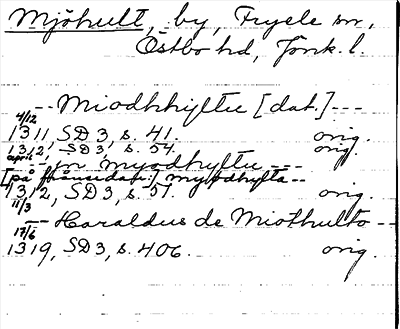 Mjöhult, by, Fryele sn,
Östbo hd, Jönk. l.
--- Miodhhyltu [dat.] ---
4/12
1311, SD 3, s. 41. orig.
1312, SD 3, s. 54. orig.
april
--- m myodhyltu ---
[på frånsidan:] myodhylta --
1312, SD 3, s. 51. orig.
11/3
--- Haraldus de Miothulto --
17/6
1319, SD 3, s. 406. orig.